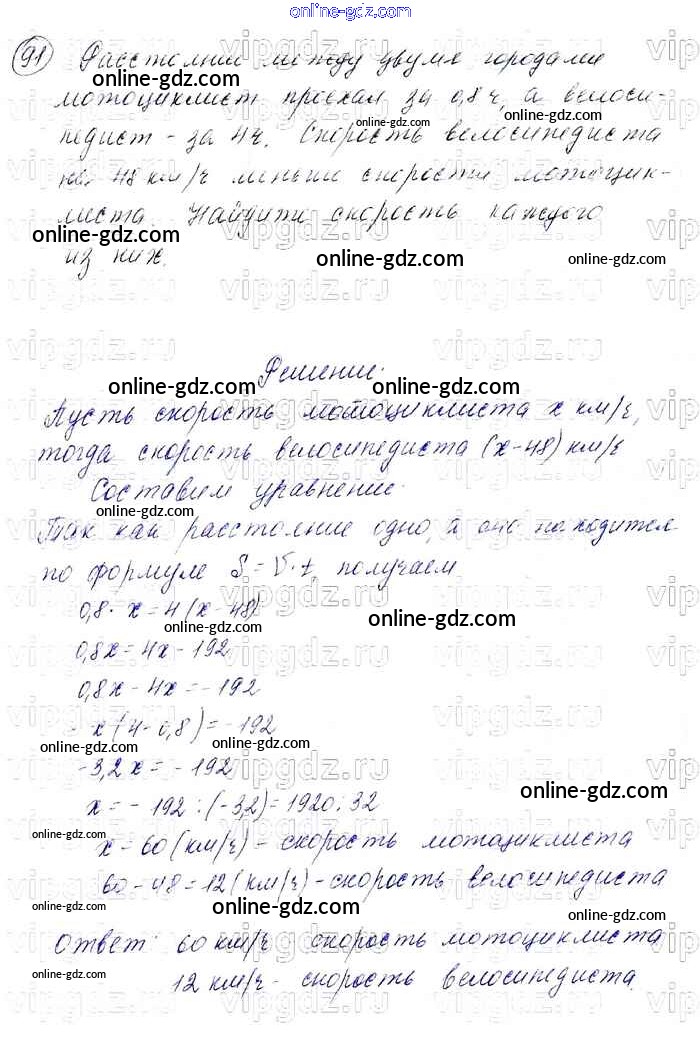 online-gdz.com
91 Расстояние между двумя городами
online-gdz.com online-gdz.com
мотоциклист проехал за 0,8 ч, а велоси-
online-gdz.com online-gdz.com
педист - за 4 ч. Скорость велосипедиста
на 48 км/ч меньше скорости мотоцик-
листа. Найдите скорость каждого
online-gdz.com online-gdz.com
из них.
online-gdz.com online-gdz.com
Решение.
online-gdz.com online-gdz.com
Пусть скорость мотоциклиста x км/ч,
тогда скорость велосипедиста (x-48) км/ч
Составим уравнение.
online-gdz.com online-gdz.com
Так как расстояние одно, а оно находится
по формуле S = V·t, получаем
online-gdz.com
0,8·x=4(x-48)
online-gdz.com online-gdz.com
0,8x=4x-192
0,8x-4x=-192
-x(4-0,8)=-192
online-gdz.com online-gdz.com
-3,2x=-192
online-gdz.com
x=-192:(-3,2)=1920:32
online-gdz.com
x=60(км/ч)-скорость мотациклиста
online-gdz.com
60-48=12(км/ч)-скорость велосипедиста
online-gdz.com online-gdz.com
Ответ: 60км/ч скорость мотоциклиста
online-gdz.com online-gdz.com
12км/ч- скорость велосипедиста.
vipgdz.ru vipgdz.ru vipgdz.ru